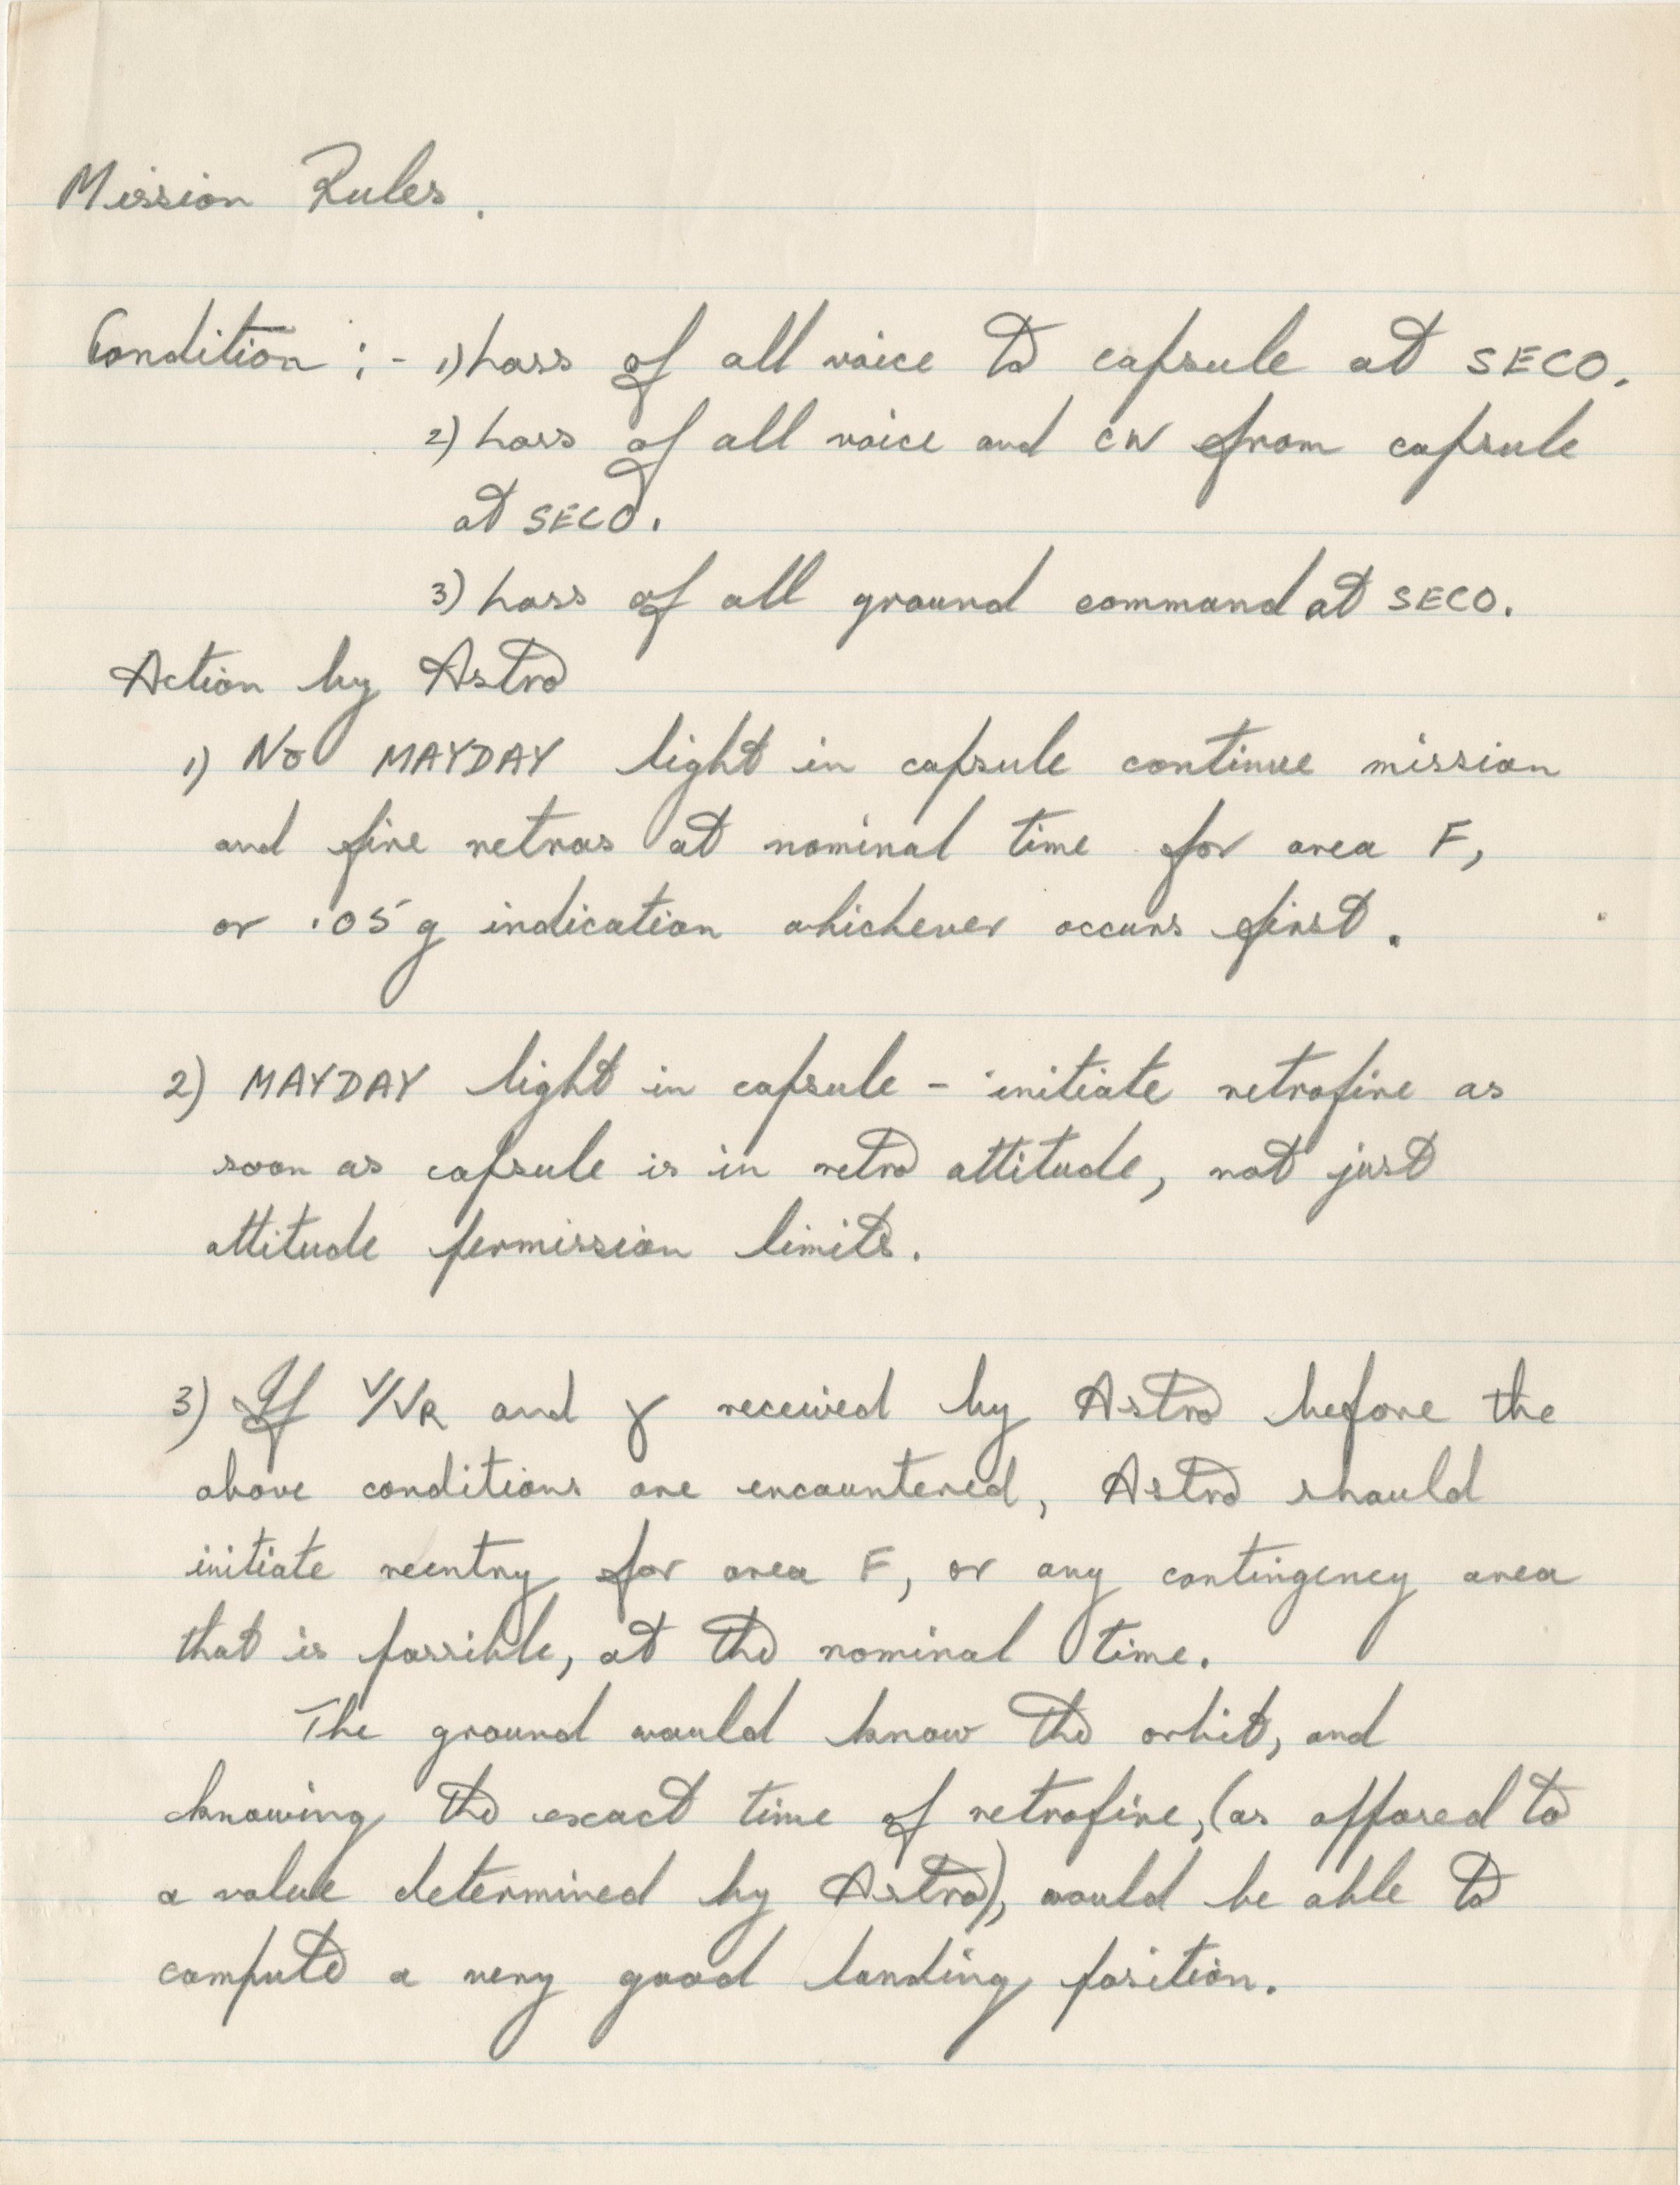 Mission Rules.
Condition :- 1) Loss of all voice to capsule at SECO.
2) Loss of all voice and CW from capsule
at SECO.
3) Loss of all ground command at SECO.
Action by Astro
1) No MAYDAY light in capsule continue mission
and fire retros at nominal time for area F,
or .05 g indication whichever occurs first.
2) MAYDAY light in capsule - initiate retrofire as
soon as capsule is in retro attitude, not just
attitude permission limits.
3) If V/VR and γ received by Astro before the
above conditions are encountered, Astro should
initiate reentry for area F, or any contingency area
that is possible, at the nominal time.
The ground would know the orbit, and
knowing the exact time of retrofire, (as opposed to
a value determined by Astro), would be able to
compute a very good landing position.